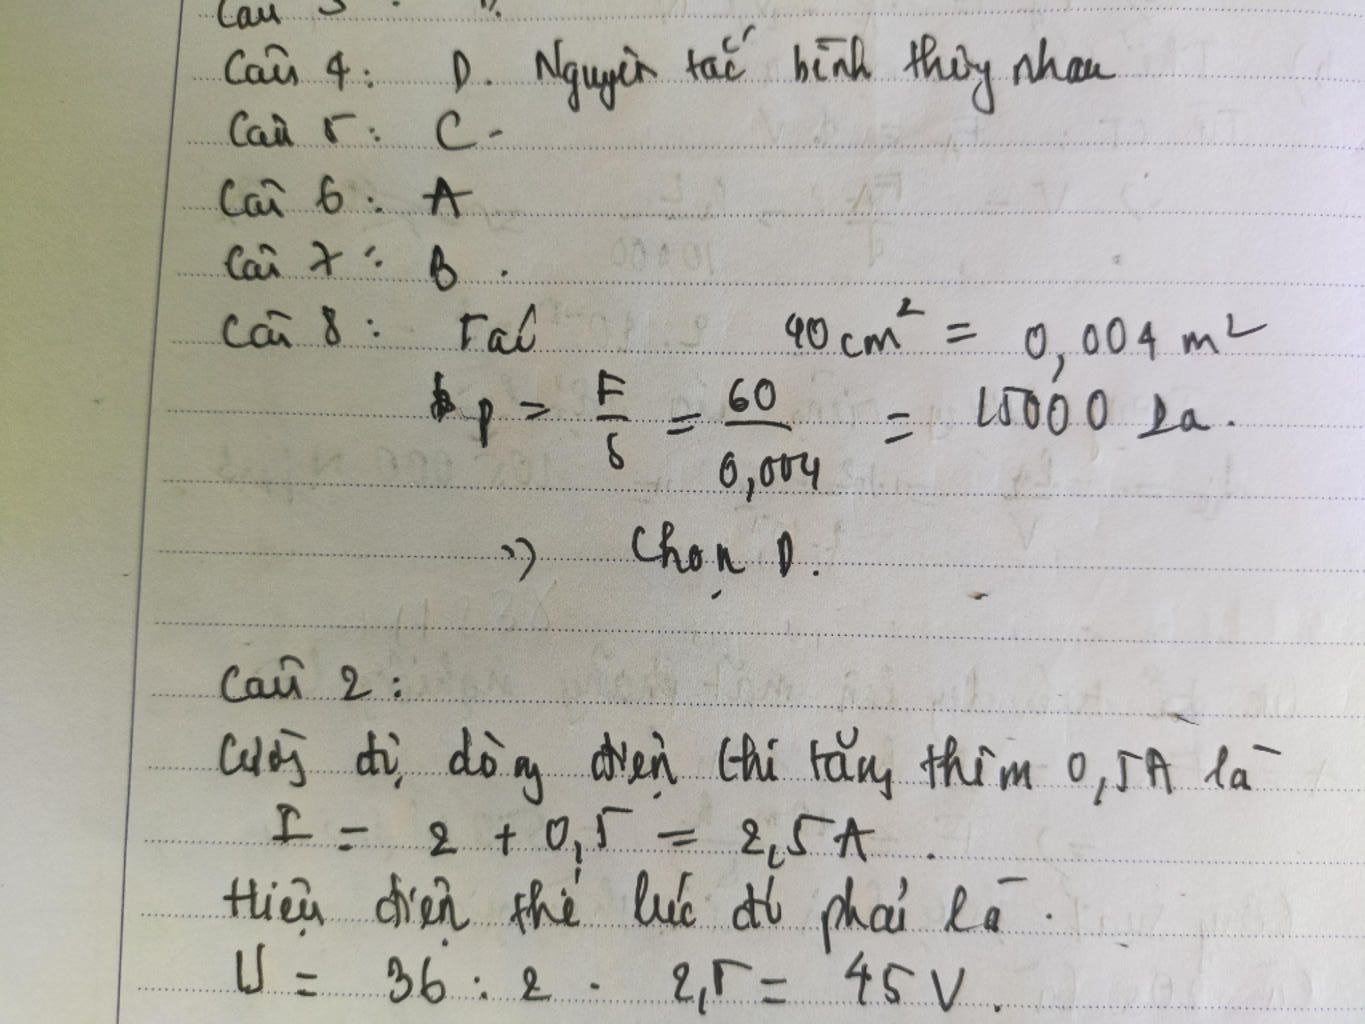 Câu 3 :
Câu 4 : D. Nguyên tắc bình thông nhau
Câu 5 : C.
Câu 6 : A
Câu 7 : B .
Câu 8 : Ta có 40 cm² = 0,004 m²
p = F/S = 60/0,004 = 15000 Pa.
=> Chọn D.
Câu 2 :
Cường độ dòng điện khi tăng thêm 0,5A là
I = 2 + 0,5 = 2,5 A .
Hiệu điện thế lúc đó phải là .
U = 36 : 2 . 2,5 = 45 V .